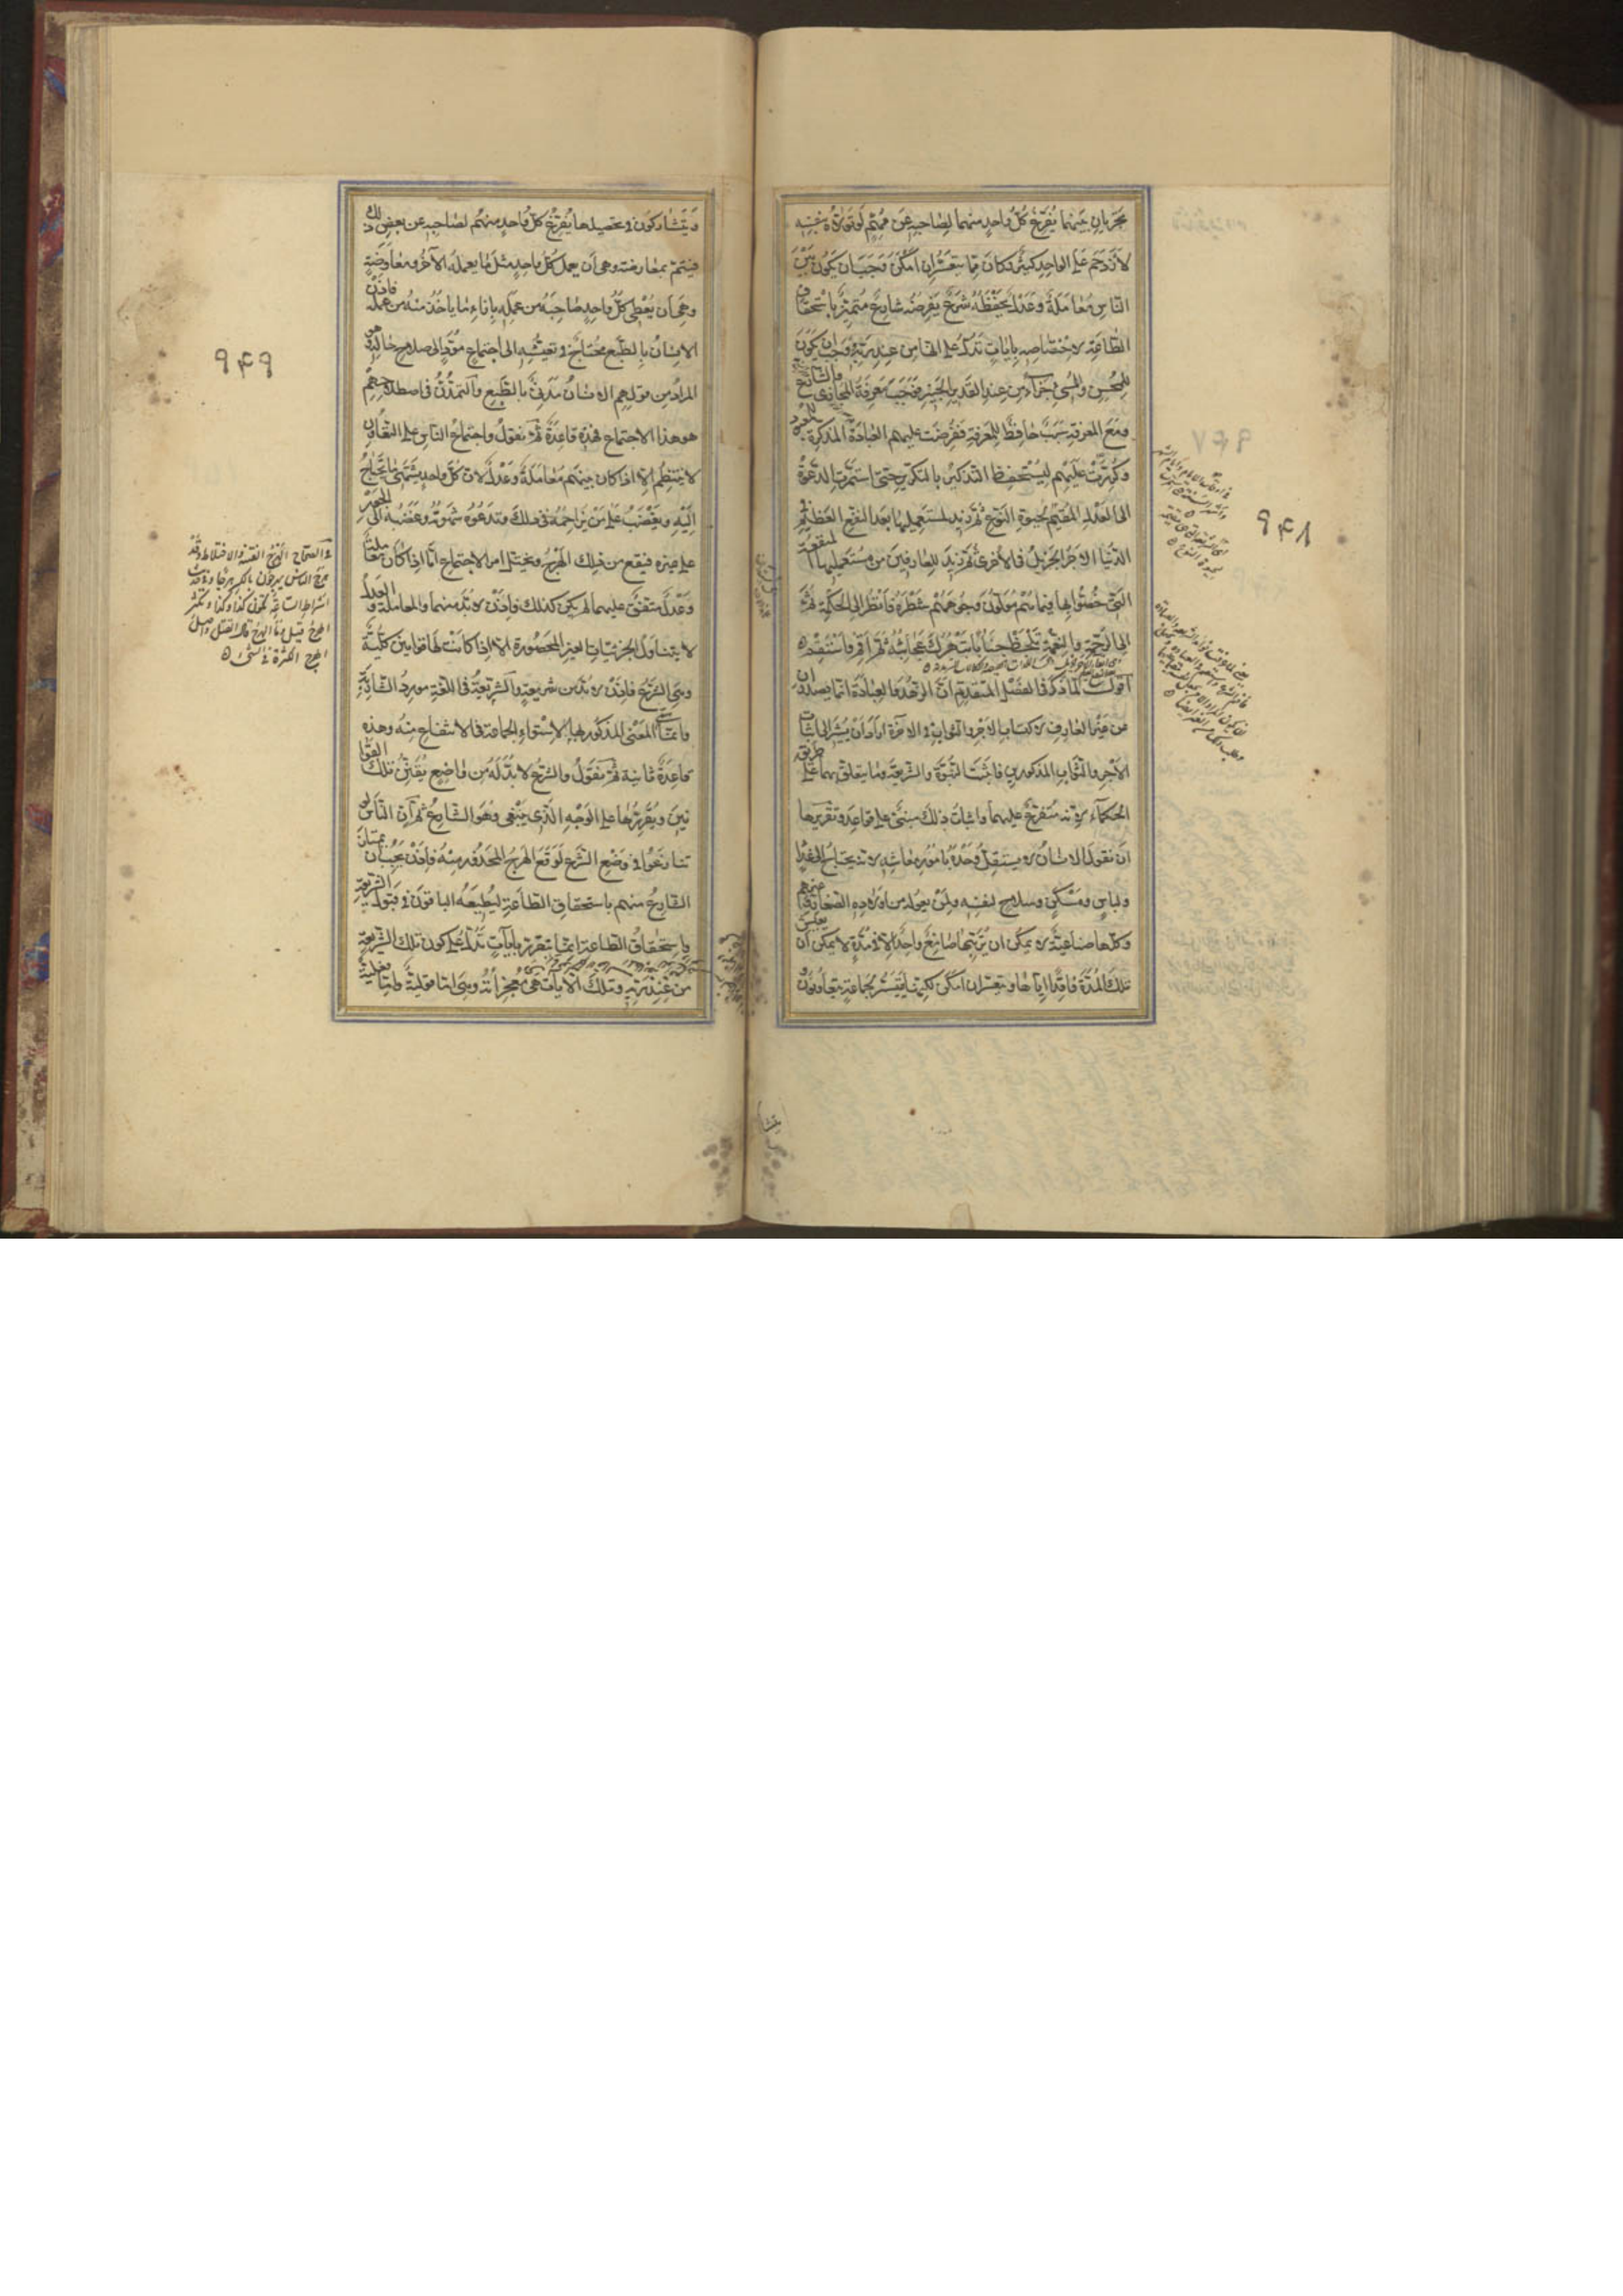 يجريان بينهما يفرغ كل واحد منهما لصاحبه عن مهم لو تولاه بنفسه
لازدحم على الواحد كثير وكان مما يتعسر ان امكن وجب ان يكون بين
الناس معاملة وعدل يحفظه شرع يفرضه شارع متميز باستحقاق
الطاعة لاختصاصه بايات تدل على انها من عند ربه ووجب ان يكون
للمحسن والمسئ جزاء من عند القدير الخبير فوجب معرفة المجازى والشارع
ومع المعرفة سبب حافظ للمعرفة ففرضت عليهم العبادة المذكرة للمعبود
وكررت عليهم ليستحفظ التذكير بالتكرير حتى استمرت الدعوة
الى العدل المقيم لحيوة النوع ثم زيد لمستعمليها بعد النفع العظيم في
الدنيا الاجر الجزيل في الاخرى ثم زيد للعارفين من مستعمليها المنفعة
التي خصوا بها فيما هم مولون وجوههم شطره فانظر الى الحكمة ثم
الى الرحمة والنعمة تلحظ جنابا تبهرك عجائبه ثم اقم واستقم
اقول لما ذكر في الفصل المتقدم ان الزهد والعبادة انما يصدران
من غير العارف لاكتساب الاجر والثواب في الاخرة اراد ان يشير الى اثبات
الاجر والثواب المذكورين فاثبت النبوة والشريعة وما يتعلق بهما على طريقة
الحكماء لانه متفرع عليهما واثبات ذلك مبني على قواعد وتقريرها
ان نقول الانسان لا يستقل وحده بامور معاشه لانه يحتاج الى غذاء
ولباس ومسكن وسلاح لنفسه ولمن يعوله من اولاده الصغار وغيرهم
وكلها صناعية لا يمكن ان يرتبها صانع واحد الا في مدة لا يمكن ان يعيش
تلك المدة فاقدا اياها او يتعسر ان امكن لكنها تتيسر لجماعة يتعاونون
٩۴٨
ويتشاركون في تحصيلها يفرغ كل واحد منهم لصاحبه عن بعض ذلك
فيتم بمعارضة وهي ان يعمل كل واحد مثل ما يعمله الاخر ومعاوضة
وهي ان يعطى كل واحد صاحبه من عمله بازاء ما ياخذ منه من عمله فاذن
الانسان بالطبع محتاج في تعيشه الى اجتماع مؤد الى صلاح حاله وهو
المراد من قولهم الانسان مدني بالطبع والتمدن في اصطلاحهم
هو هذا الاجتماع فهذه قاعدة ثم نقول واجتماع الناس على التعاون
لا ينتظم الا اذا كان بينهم معاملة وعدل لان كل واحد يشتهي ما يحتاج
اليه ويغضب على من يزاحمه في ذلك وتدعوه شهوته وغضبه الى الجور
على غيره فيقع من ذلك الهرج ويختل امر الاجتماع اما اذا كان معاملة
وعدل متفق عليهما لم يكن كذلك فاذن لا بد منهما والمعاملة والعدل
لا يتناول الجزئيات الغير المحصورة الا اذا كانت لها قوانين كلية
وهي الشرع فاذن لا بد من شريعة والشريعة في اللغة مورد الشاربة
وانما سمي المعنى المذكور بها لاستواء الجماعة في الانتفاع منه وهذه
قاعدة ثانية ثم نقول والشرع لا بد له من واضع يقنن تلك القوانين
ويقررها على الوجه الذي ينبغي وهو الشارع ثم ان الناس لو
تنازعوا في وضع الشرع لوقع الهرج المحذور منه فاذن يجب ان يمتاز
الشارع منهم باستحقاق الطاعة ليطيعه الباقون في قبول الشريعة
واستحقاق الطاعة انما يتقرر بايات تدل على كون تلك الشريعة
من عند ربه وتلك الايات هي معجزاته وهي اما قولية واما فعلية
٩۴٩
في الصحاح الهرج الفتنة والاختلاط وقد
هرج الناس يهرجون بالكسر هرجا وفي حديث
اشراط الساعة يكون كذا وكذا ويكثر
الهرج قيل وما الهرج قال القتل واصل
الهرج الكثرة في الشئ